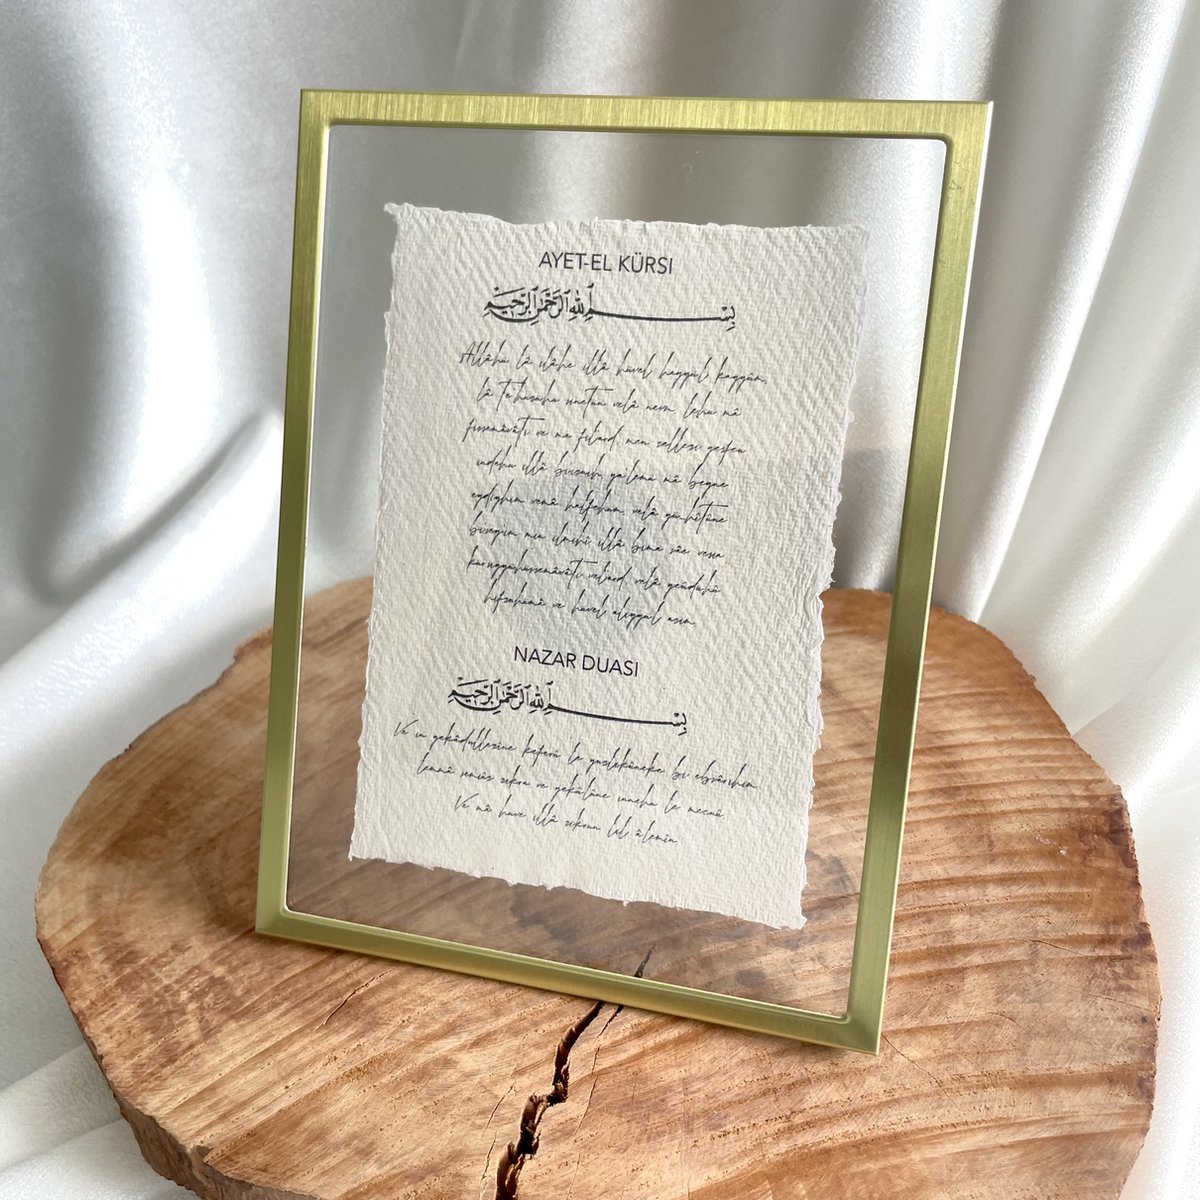 AYET-EL KÜRSI
بِسْمِ ٱللَّهِ ٱلرَّحْمَٰنِ ٱلرَّحِيمِ
Allâhü lâ ilâhe illâ hüvel hayyül kayyûm,
lâ te'huzuhu sinetün velâ nevm, lehu mâ
fissemâvâti ve ma fil'ard, men zellezi yeşfeu
indehu illâ biiznih, ya'lemu mâ beyne
eydiyhim vemâ halfehum, velâ yü-hîtûne
bişeyin min ilmihî illâ bima şâe vesia
kürsiyyühüssemâvâti vel'ard, velâ yeûdühû
hifzuhumâ ve hüvel aliyyül azim
NAZAR DUASI
بِسْمِ ٱللَّهِ ٱلرَّحْمَٰنِ ٱلرَّحِيمِ
Ve in yekâdüllezine keferû le yuzlekûneke bi ebsârihim
lemmâ semiûz zikra ve yekûlûne innehu le mecnû
Ve mâ huve illâ zikrun lil âlemîn